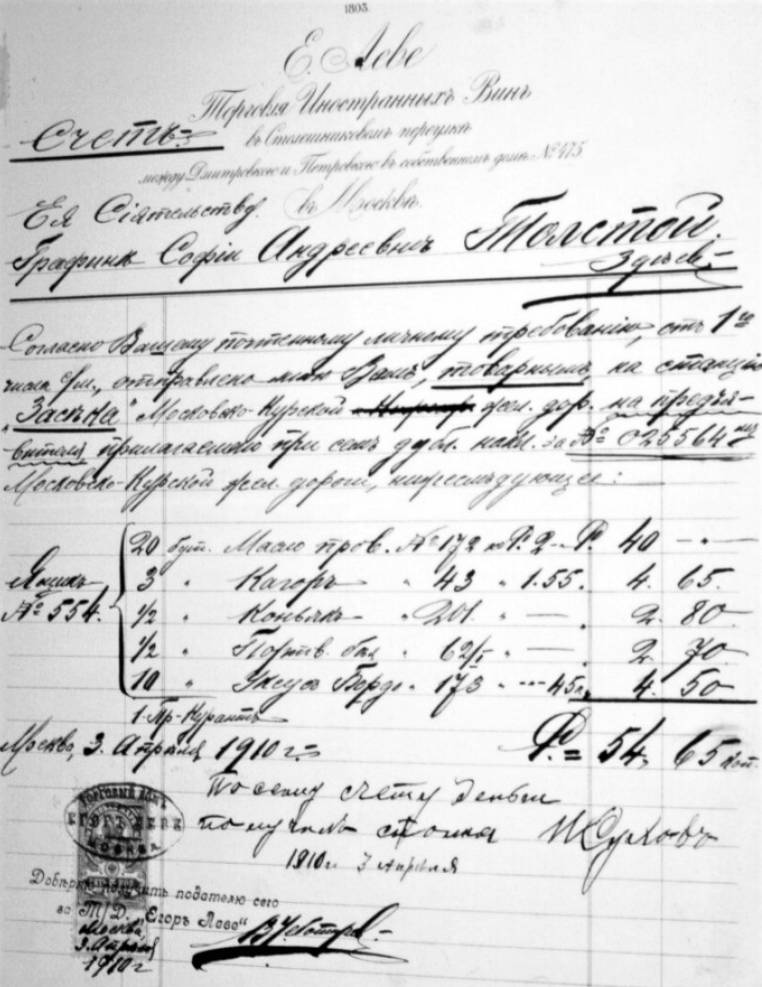 1803.
Е. Леве
Торговля Иностранныхъ Винъ
Счетъ
въ Столешниковомъ переулкѣ
между Дмитровкою и Петровкою въ собственномъ домѣ № 475
въ Москвѣ.
Ея Сіятельству
Графинѣ Софіи Андреевнѣ Толстой.
Здѣсь
Согласно Вашему почтенному личному требованію, отъ 1го
числа с/м., отправлено мною Вамъ, товарнымъ, на станцію
"Засѣка" Московско-Курской жел. дор. на предъя-
вителя прилагаемаго при семъ дубл. накл. за № 025564
Московско-Курской жел. дороги, нижеслѣдующее:
20 бут. Масло пров. № 172 по Р. 2 - Р. 40 - -
Ящикъ 3 " Кагоръ " 43 " 1.55. 4. 65.
№ 554. 1/2 " Коньякъ " 201. " — . 2. 80
1/2 " Портв. бѣл. " 62/1 " — . 2. 70
10 " Уксусъ Бордо " 173 " -- 45к. 4. 50
1 Пр-Курантъ
Москва, 3. Апрѣля 1910 г. Р. = 54. 65 коп.
По сему счету деньги
получилъ сполна
1910 г. 3 апрѣля
ТОРГОВЫЙ ДОМЪ
ЕГОРЪ ЛЕВЕ
МОСКВА
Довѣряемъ получить подателю сего
за Т/Д. „Егоръ Леве"
Москва,
3. Апрѣля
1910 г